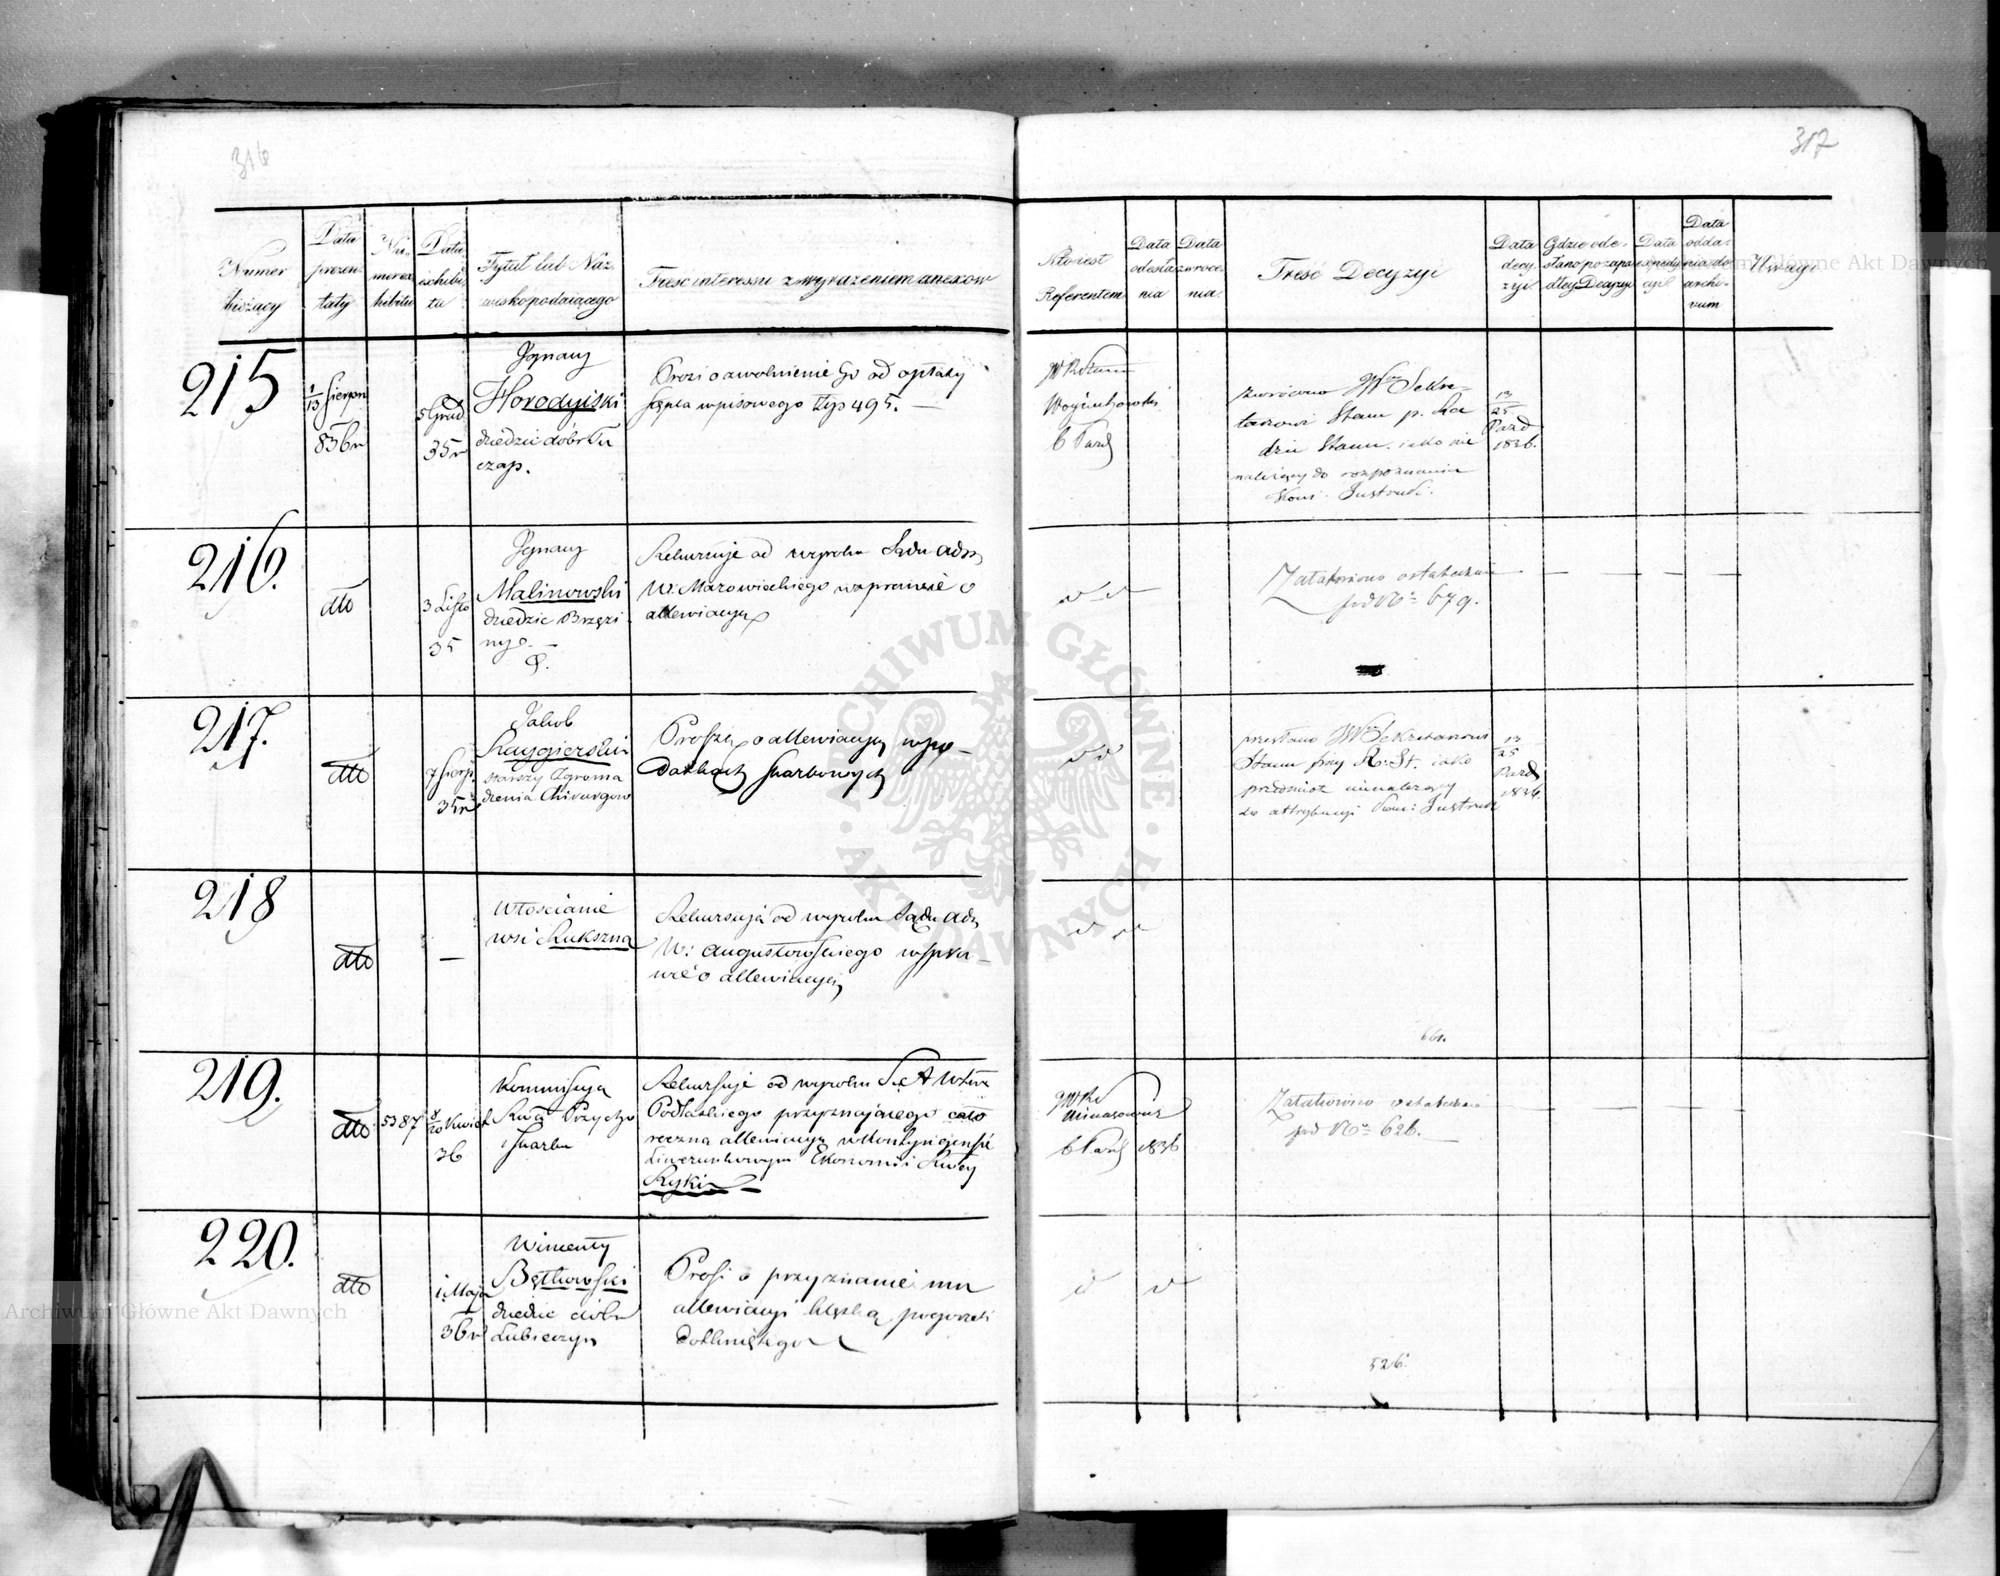 316
317
Numer bieżący
Data prezentaty
Numer exhibitu
Data exhibitu
Tytuł lub Nazwisko podaiącego
Treść interessu z wyrażeniem anexow
Kto iest Referentem
Data odesłania
Data zwrocenia
Treść Decyzyi
Data decyzyi
Gdzie odesłano po zapadłey Decyzyi
Data expedycyi
Data oddania do archivum
Uwagi
215
1/13 Sierpn
836 r
5 Grud
35 r
Ignacy
Horodyiski
dziedzic dóbr
Prosi o uwolnienie Go od opłaty
stępla wpisowego złp 495. —
6 Pazd
zwrócono JWmu Sekre-
tarzowi Stanu p. Ra
dzie Stanu. iako nie
należący do rozpoznania
Kom: Instrukc.
13/25
Pazd
1836.
216.
dto
3 Listo
35
Ignacy
Malinowski
dziedzic Brzezi
ny
Rekursuje od wyroku Sądu Adm
W: Mazowieckiego w sprawie o
allewiacyą
Załatwiono ostatecznie
pod No 679.
217.
dto
7 Sierp
35 r
Jakub
starszy Zgroma
dzenia Chirurgow
Proszą o allewiacyą w po-
datkach skarbowych
przesłano JWmu Sekretarzowi
Stanu przy R: St. iako
przedmiot nienalezący
do attrybucyi Kom: Instrukc
13/25
Pazd
1836.
218
dto
—
Włoscianie
wsi
Rekursują od wyroku Sądu Adm
W: Augustowskiego w spra-
wie o allewiacyą
661.
219.
dto
5387
8/20 Kwiet
36
Kommissya
Rwa Przycho
i Skarbu
Rekursuje od wyroku S A Wztwa
Podlaskiego przyznającego cało
roczną allewiacyą w Kontyngensie
Liwerunkowym Ekonomii Rwey
Ryki —
6 Pazd 1836
Załatwiono ostatecznie
pod No 626.
220.
dto
1 Maja
36 r
Wincenty
Bętkowski
dziedzic dóbr
Lubieczyn
Prosi o przyznanie mu
allewiacyi klęską pogorzeli
dotkniętego
526.
ARCHIWUM GŁÓWNE · AKT DAWNYCH ·
Archiwum Główne Akt Dawnych
Archiwum Główne Akt Dawnych